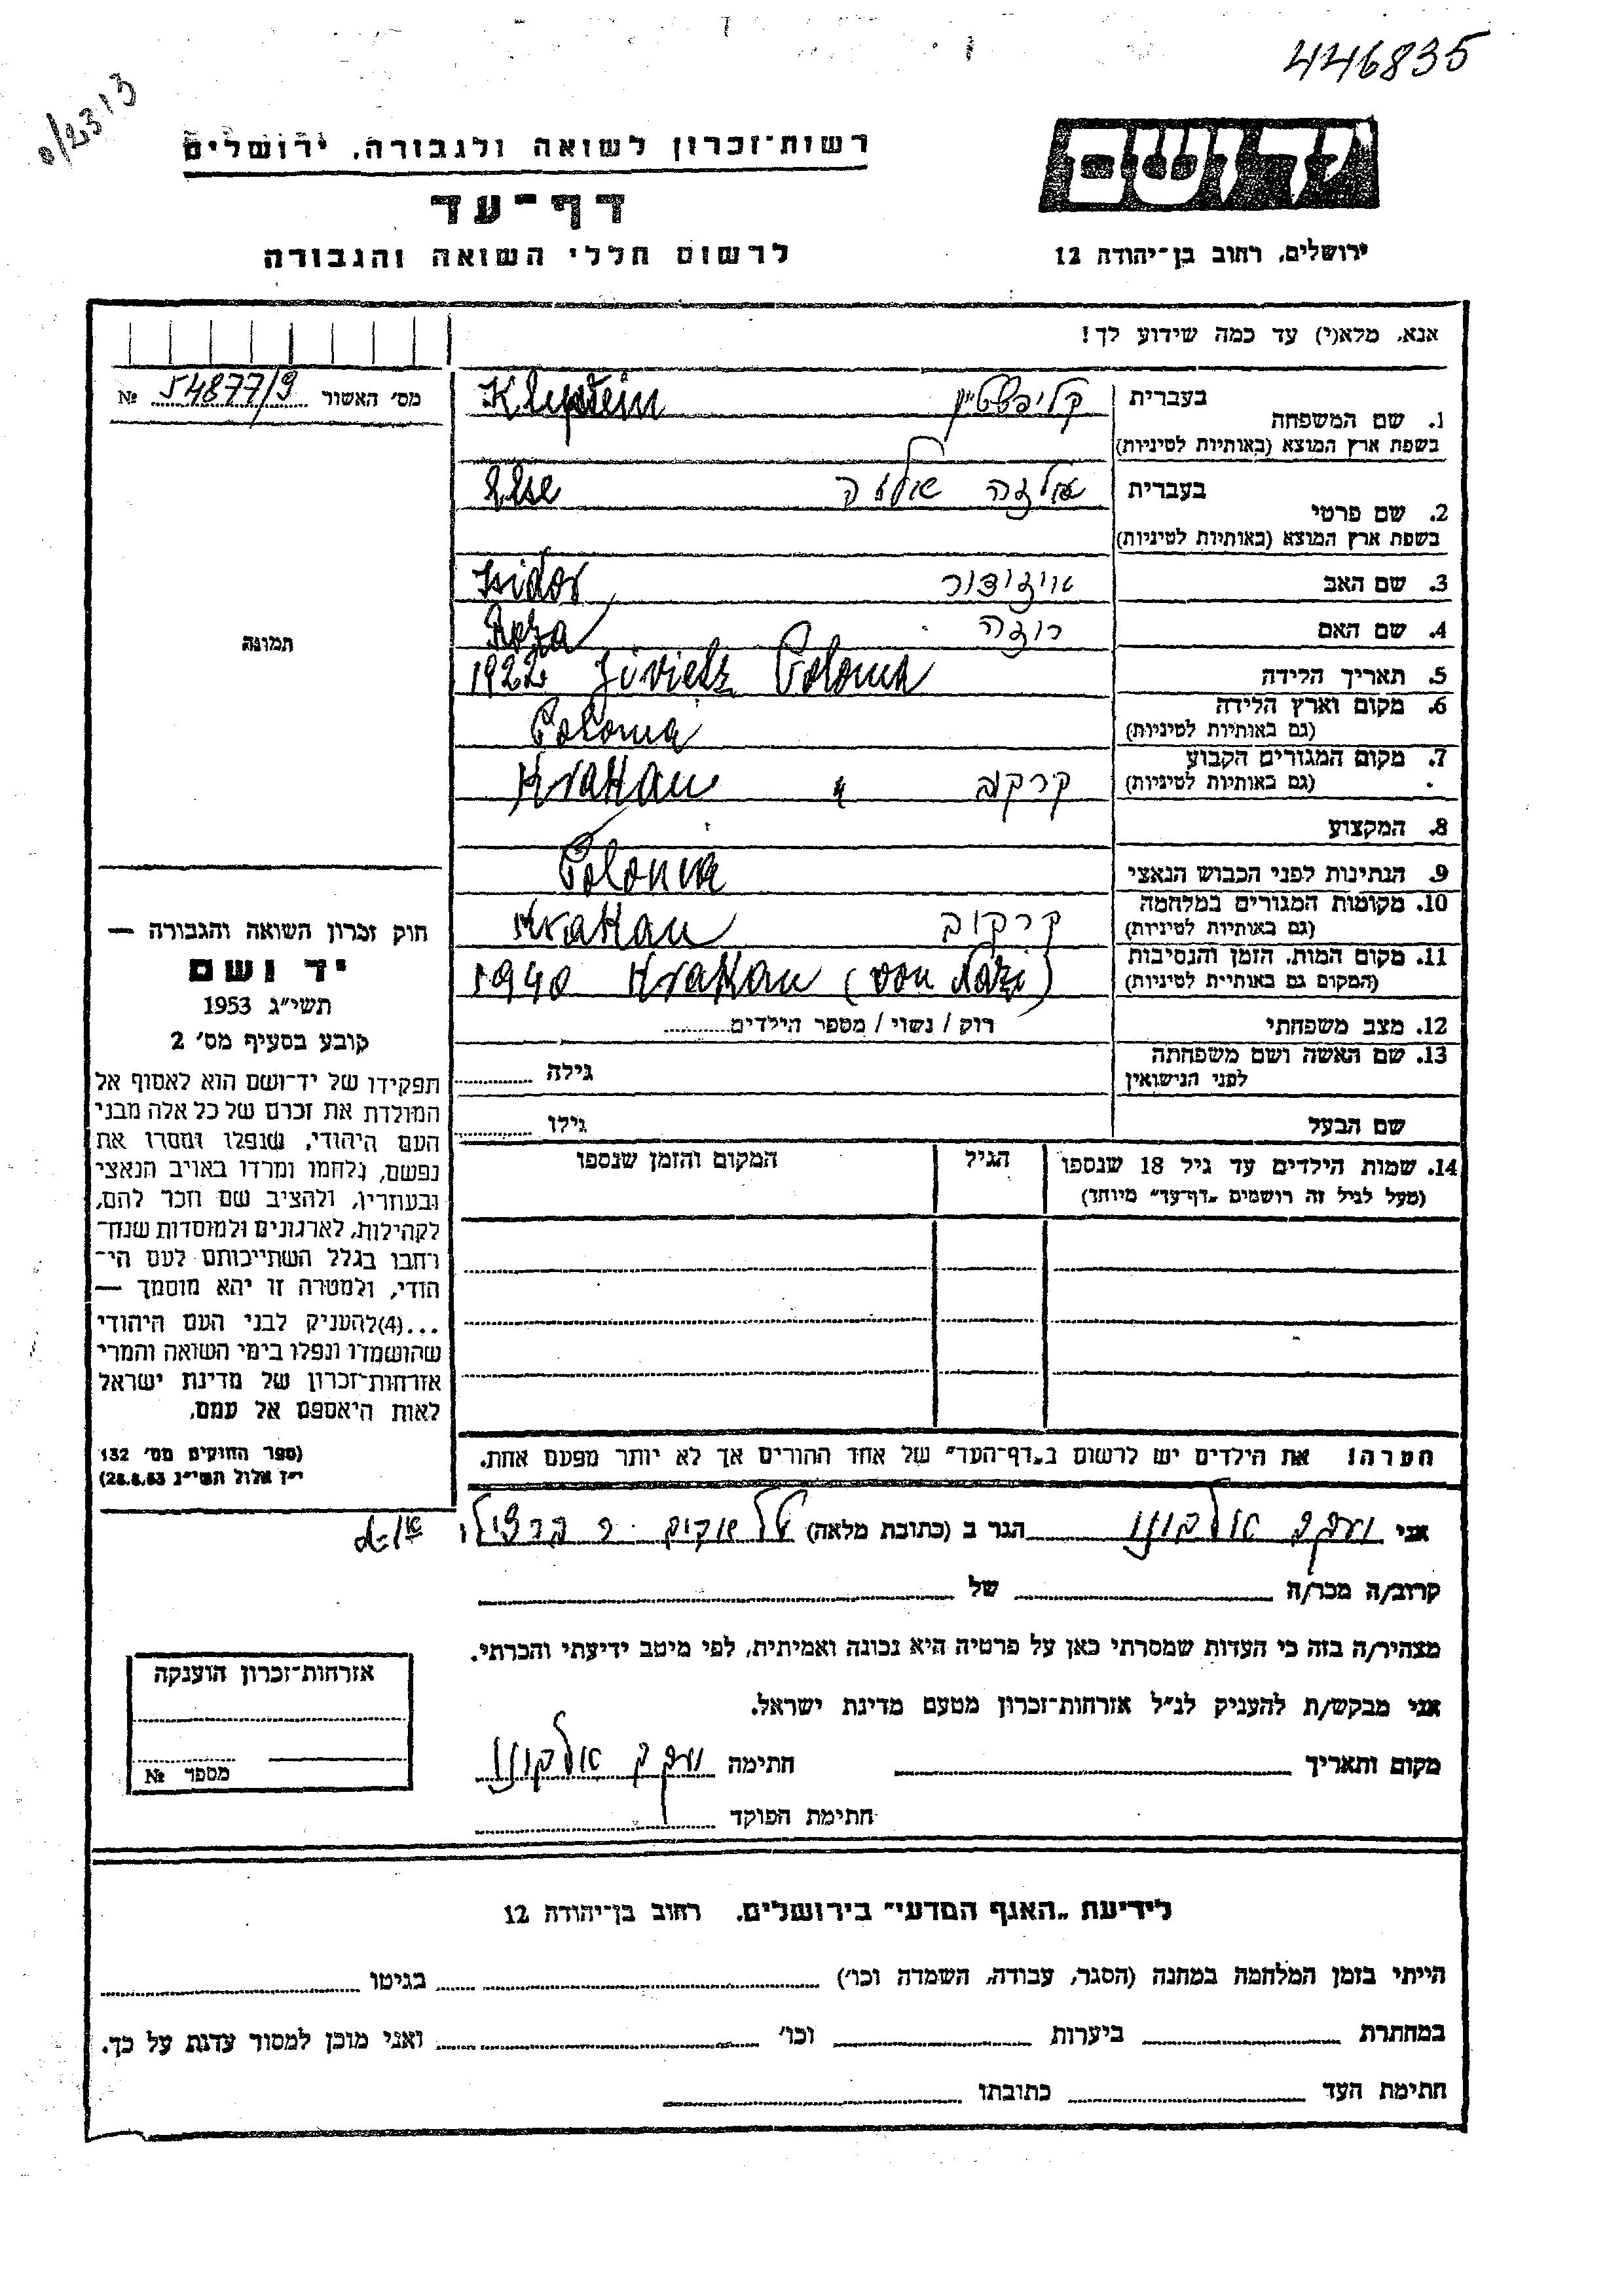 446835
0/2313
רשות־זכרון לשואה ולגבורה, ירושלים
יד ושם
דף־עד
לרשום חללי השואה והגבורה
ירושלים, רחוב בן־יהודה 12
אנא, מלא(י) עד כמה שידוע לך!
מס׳ האשור 54877/9 №
1. שם המשפחה
בעברית קליפשטיין Klipstein
בשפת ארץ המוצא (באותיות לטיניות)
2. שם פרטי
בעברית Else
בשפת ארץ המוצא (באותיות לטיניות)
3. שם האב איזידור Isidor
4. שם האם רוזה Roza
5. תאריך הלידה 1922 Polonia
6. מקום וארץ הלידה
(גם באותיות לטיניות) Polonia
7. מקום המגורים הקבוע
(גם באותיות לטיניות) קרקוב Krakau
8. המקצוע
9. הנתינות לפני הכבוש הנאצי Polonia
10. מקומות המגורים במלחמה
(גם באותיות לטיניות) קרקוב Krakau
11. מקום המות, הזמן והנסיבות
(המקום גם באותיית לטיניות) 1940 Krakau (von Nazi)
12. מצב משפחתי רוק / נשוי / מספר הילדים
13. שם האשה ושם משפחתה
לפני הנישואין גילה
שם הבעל גילו
14. שמות הילדים עד גיל 18 שנספו הגיל המקום והזמן שנספו
(מעל לגיל זה רושמים „דף־עד״ מיוחד)
תמונה
חוק זכרון השואה והגבורה —
יד ושם
תשי״ג 1953
קובע בסעיף מס׳ 2
תפקידו של יד־ושם הוא לאסוף אל
המולדת את זכרם של כל אלה מבני
העם היהודי, שנפלו ומסרו את
נפשם, נלחמו ומרדו באויב הנאצי
ובעוזריו, ולהציב שם וזכר להם,
לקהילות, לארגונים ולמוסדות שנח־
רחבו בגלל השתייכותם לעם הי־
הודי, ולמטרה זו יהא מוסמך —
...(4) להעניק לבני העם היהודי
שהושמדו ונפלו בימי השואה והמרי
אזרחות־זכרון של מדינת ישראל
לאות היאספם אל עמם.
(ספר החוקים מס׳ 132
י״ז אלול תשי״ג 28.8.53)
הערה! את הילדים יש לרשום ב„דף־העד״ של אחד ההורים אך לא יותר מפעם אחת.
אני הגר ב (כתובת מלאה)
קרוב/ה מכר/ה של
מצהיר/ה בזה כי העדות שמסרתי כאן על פרטיה היא נכונה ואמיתית, לפי מיטב ידיעתי והכרתי.
אני מבקש/ת להעניק לנ״ל אזרחות־זכרון מטעם מדינת ישראל.
מקום ותאריך חתימה
חתימת הפוקד
אזרחות־זכרון הוענקה
מספר №
לידיעת „האגף המדעי״ בירושלים, רחוב בן־יהודה 12
הייתי בזמן המלחמה במחנה (הסגר, עבודה, השמדה וכו׳) בגיטו
במחתרת ביערות וכו׳ ואני מוכן למסור עדות על כך.
חתימת העד כתובתו